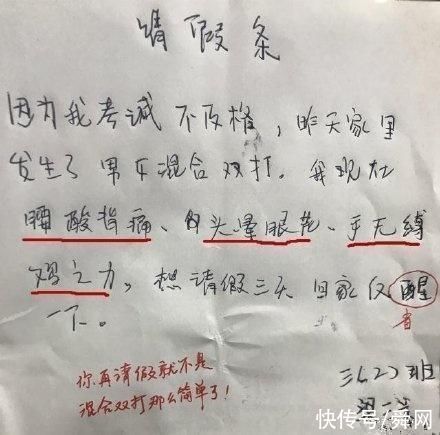 请假条
因为我考试不及格，昨天家里
发生了男女混合双打。我现在
腰酸背痛、头晕眼花、手无缚
鸡之力，想请假三天回家反醒
省
一下。
你再请假就不是
混合双打那么简单了！
三(2)班
快传号/舜网